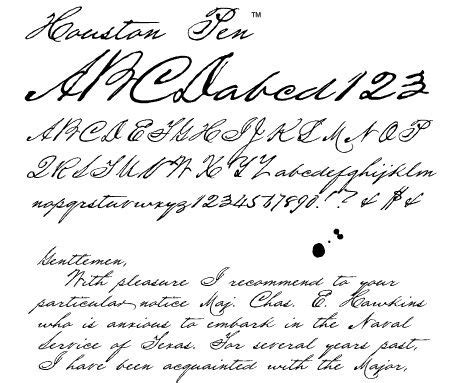 Houston Pen™
ABCDabcd123
ABCDEFGHIJKLMNOP
QRSTUVWXYZabcdefghijklm
nopqrstuvwxyz1234567890!?&$&
Gentlemen,
With pleasure I recommend to your
particular notice Maj. Chas. E. Hawkins
who is anxious to embark in the Naval
Service of Texas. For several years past,
I have been acquainted with the Major,